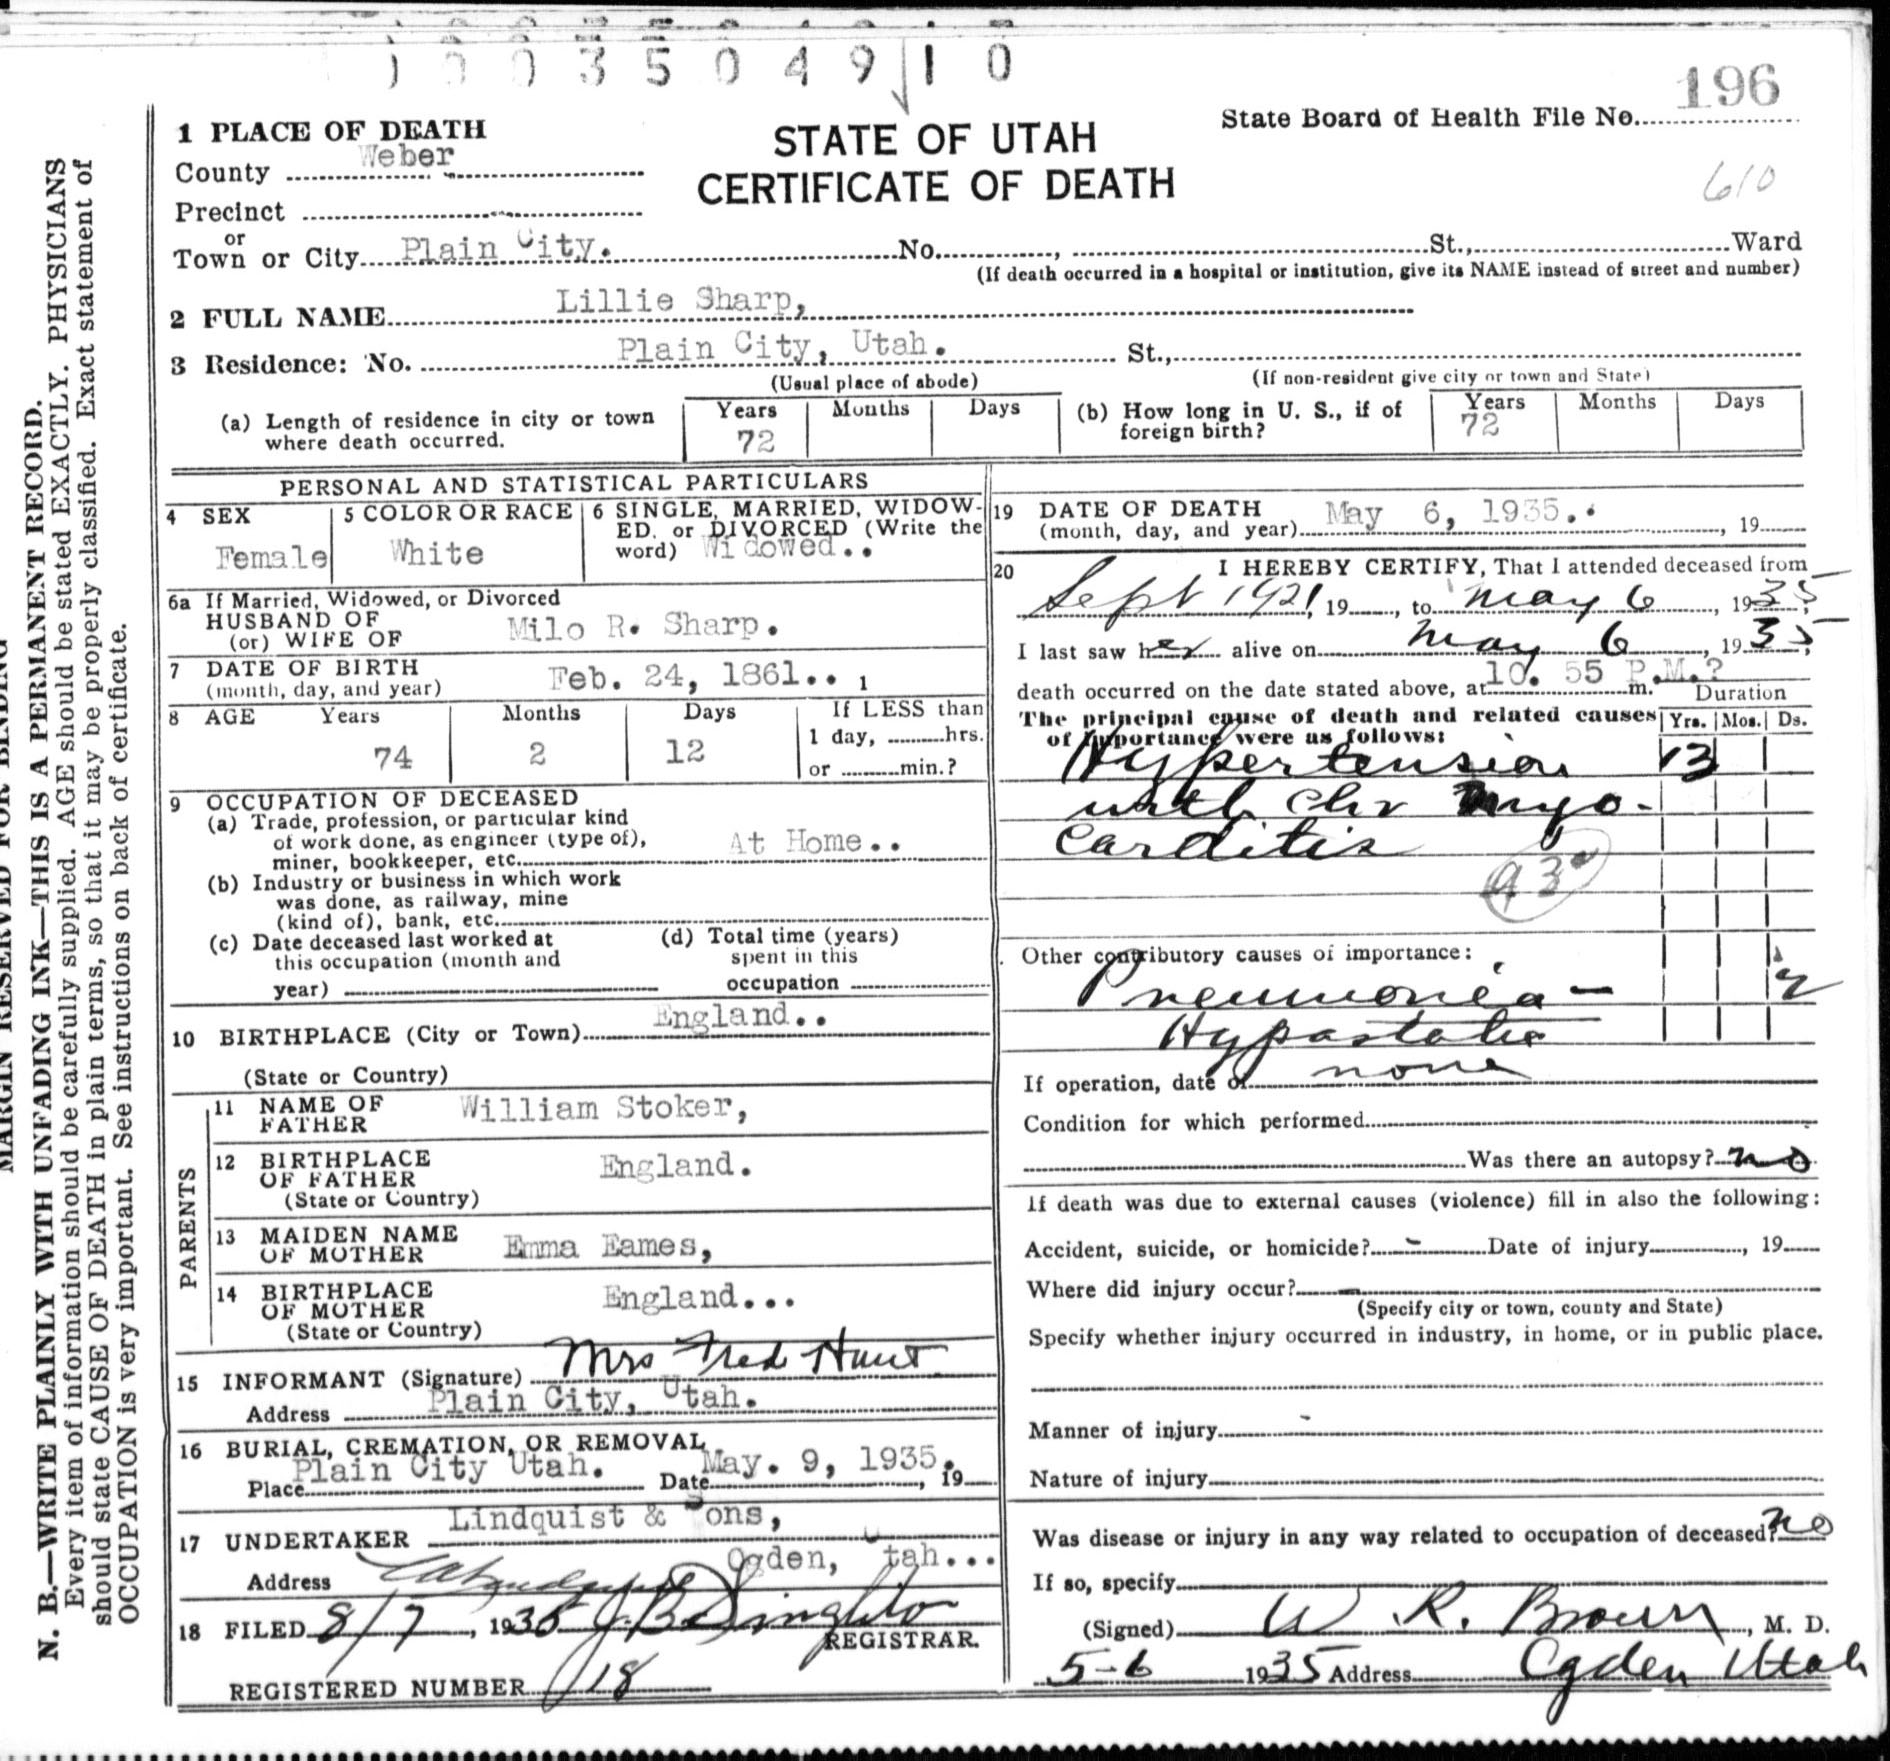 3 5 0 4 9 1 0
196
1 PLACE OF DEATH
STATE OF UTAH
CERTIFICATE OF DEATH
State Board of Health File No.
610
County Weber
Precinct
or
Town or City Plain City. No. , St., Ward
(If death occurred in a hospital or institution, give its NAME instead of street and number)
2 FULL NAME Lillie Sharp,
3 Residence: No. Plain City, Utah. St.,
(Usual place of abode) (If non-resident give city or town and State)
(a) Length of residence in city or town where death occurred. Years 72 Months Days
(b) How long in U. S., if of foreign birth? Years 72 Months Days
PERSONAL AND STATISTICAL PARTICULARS
4 SEX Female
5 COLOR OR RACE White
6 SINGLE, MARRIED, WIDOW-
ED, or DIVORCED (Write the
word) Widowed..
6a If Married, Widowed, or Divorced
HUSBAND OF
(or) WIFE OF Milo R. Sharp.
7 DATE OF BIRTH
(month, day, and year) Feb. 24, 1861.. 1
8 AGE Years Months Days If LESS than
74 2 12 1 day, hrs.
or min.?
9 OCCUPATION OF DECEASED
(a) Trade, profession, or particular kind
of work done, as engineer (type of),
miner, bookkeeper, etc. At Home..
(b) Industry or business in which work
was done, as railway, mine
(kind of), bank, etc.
(c) Date deceased last worked at
this occupation (month and
year)
(d) Total time (years)
spent in this
occupation
10 BIRTHPLACE (City or Town) England..
(State or Country)
PARENTS
11 NAME OF
FATHER William Stoker,
12 BIRTHPLACE
OF FATHER England.
(State or Country)
13 MAIDEN NAME
OF MOTHER Emma Eames,
14 BIRTHPLACE
OF MOTHER England...
(State or Country)
15 INFORMANT (Signature) Mrs Fred Hunt
Address Plain City, Utah.
16 BURIAL, CREMATION, OR REMOVAL
Place Plain City Utah. Date May. 9, 1935. , 19
17 UNDERTAKER Lindquist & Sons,
Address Ogden, Utah...
18 FILED 8/7, 1935
REGISTRAR.
REGISTERED NUMBER 18
19 DATE OF DEATH
(month, day, and year) May 6, 1935.. , 19
20 I HEREBY CERTIFY, That I attended deceased from
Sept 1921, 19 , to May 6 , 1935,
I last saw her alive on May 6 , 1935,
death occurred on the date stated above, at 10. 55 P.M.? m.
Duration
The principal cause of death and related causes
of importance were as follows:
Yrs. Mos. Ds.
Hypertension 13
with chr myo-
carditis
93
Other contributory causes of importance:
Pneumonia - 2
Hypostatic
If operation, date of none
Condition for which performed
Was there an autopsy? no
If death was due to external causes (violence) fill in also the following:
Accident, suicide, or homicide? - Date of injury , 19
Where did injury occur?
(Specify city or town, county and State)
Specify whether injury occurred in industry, in home, or in public place.
Manner of injury -
Nature of injury
Was disease or injury in any way related to occupation of deceased? no
If so, specify
(Signed) W. R. Brown, M. D.
5-6 1935 Address Ogden Utah
MARGIN RESERVED FOR BINDING
N. B.—WRITE PLAINLY WITH UNFADING INK—THIS IS A PERMANENT RECORD.
Every item of information should be carefully supplied. AGE should be stated EXACTLY. PHYSICIANS
should state CAUSE OF DEATH in plain terms, so that it may be properly classified. Exact statement of
OCCUPATION is very important. See instructions on back of certificate.